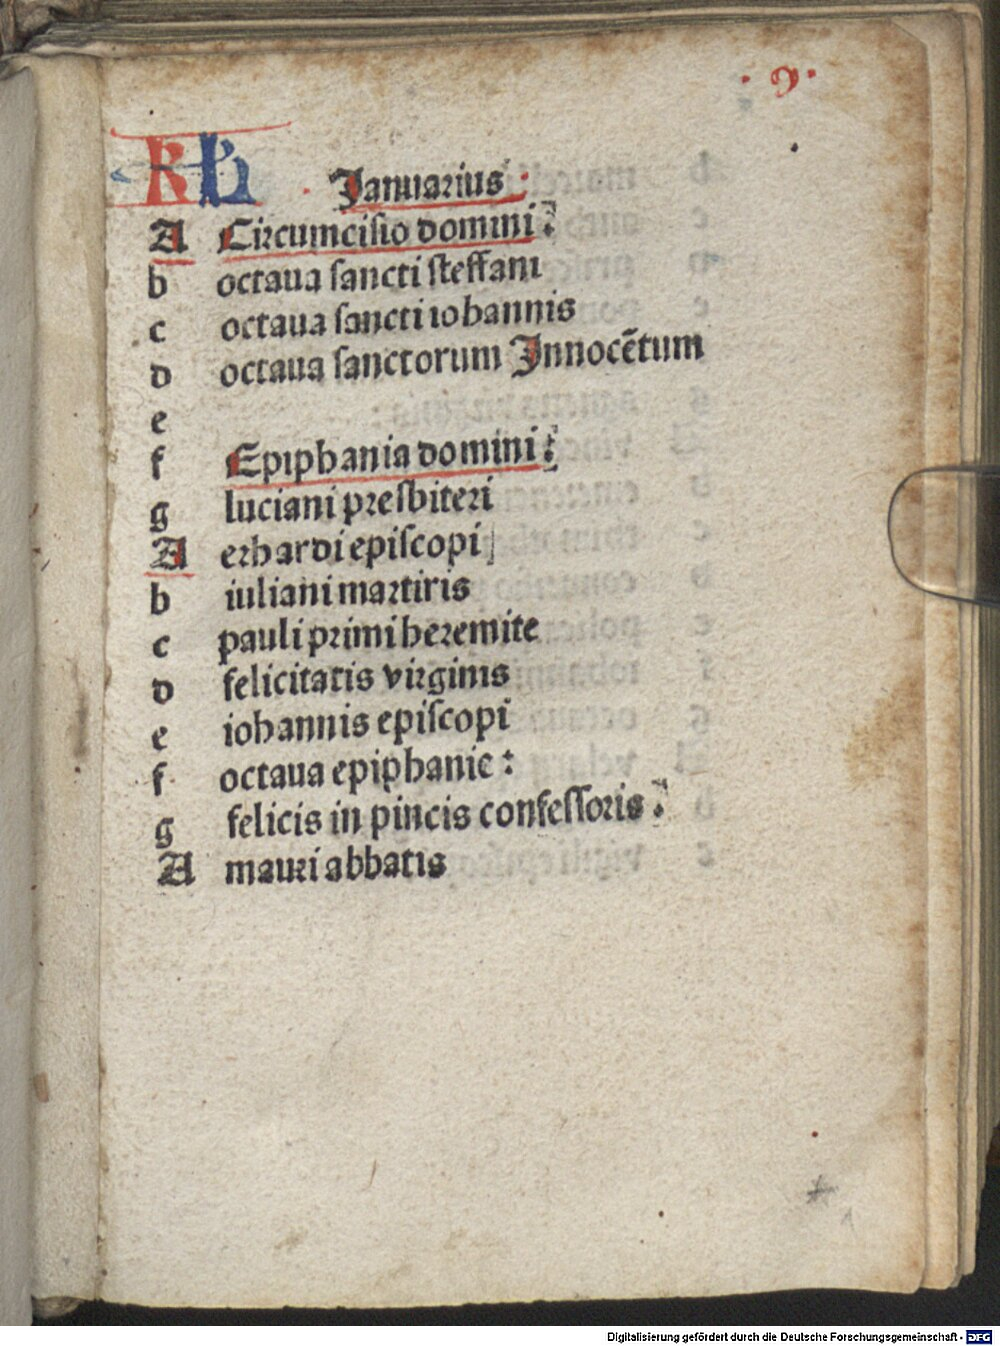 · 9 ·
KL Januarius :
A Circumcisio domini :
b octaua sancti steffani
c octaua sancti iohannis
d octaua sanctorum Innocētum
e
f Epiphania domini :
g luciani presbiteri
A erhardi episcopi
b iuliani martiris
c pauli primi heremite
d felicitatis virginis
e iohannis episcopi
f octaua epiphanie :
g felicis in pincis confessoris :
A mauri abbatis
Digitalisierung gefördert durch die Deutsche Forschungsgemeinschaft - DFG